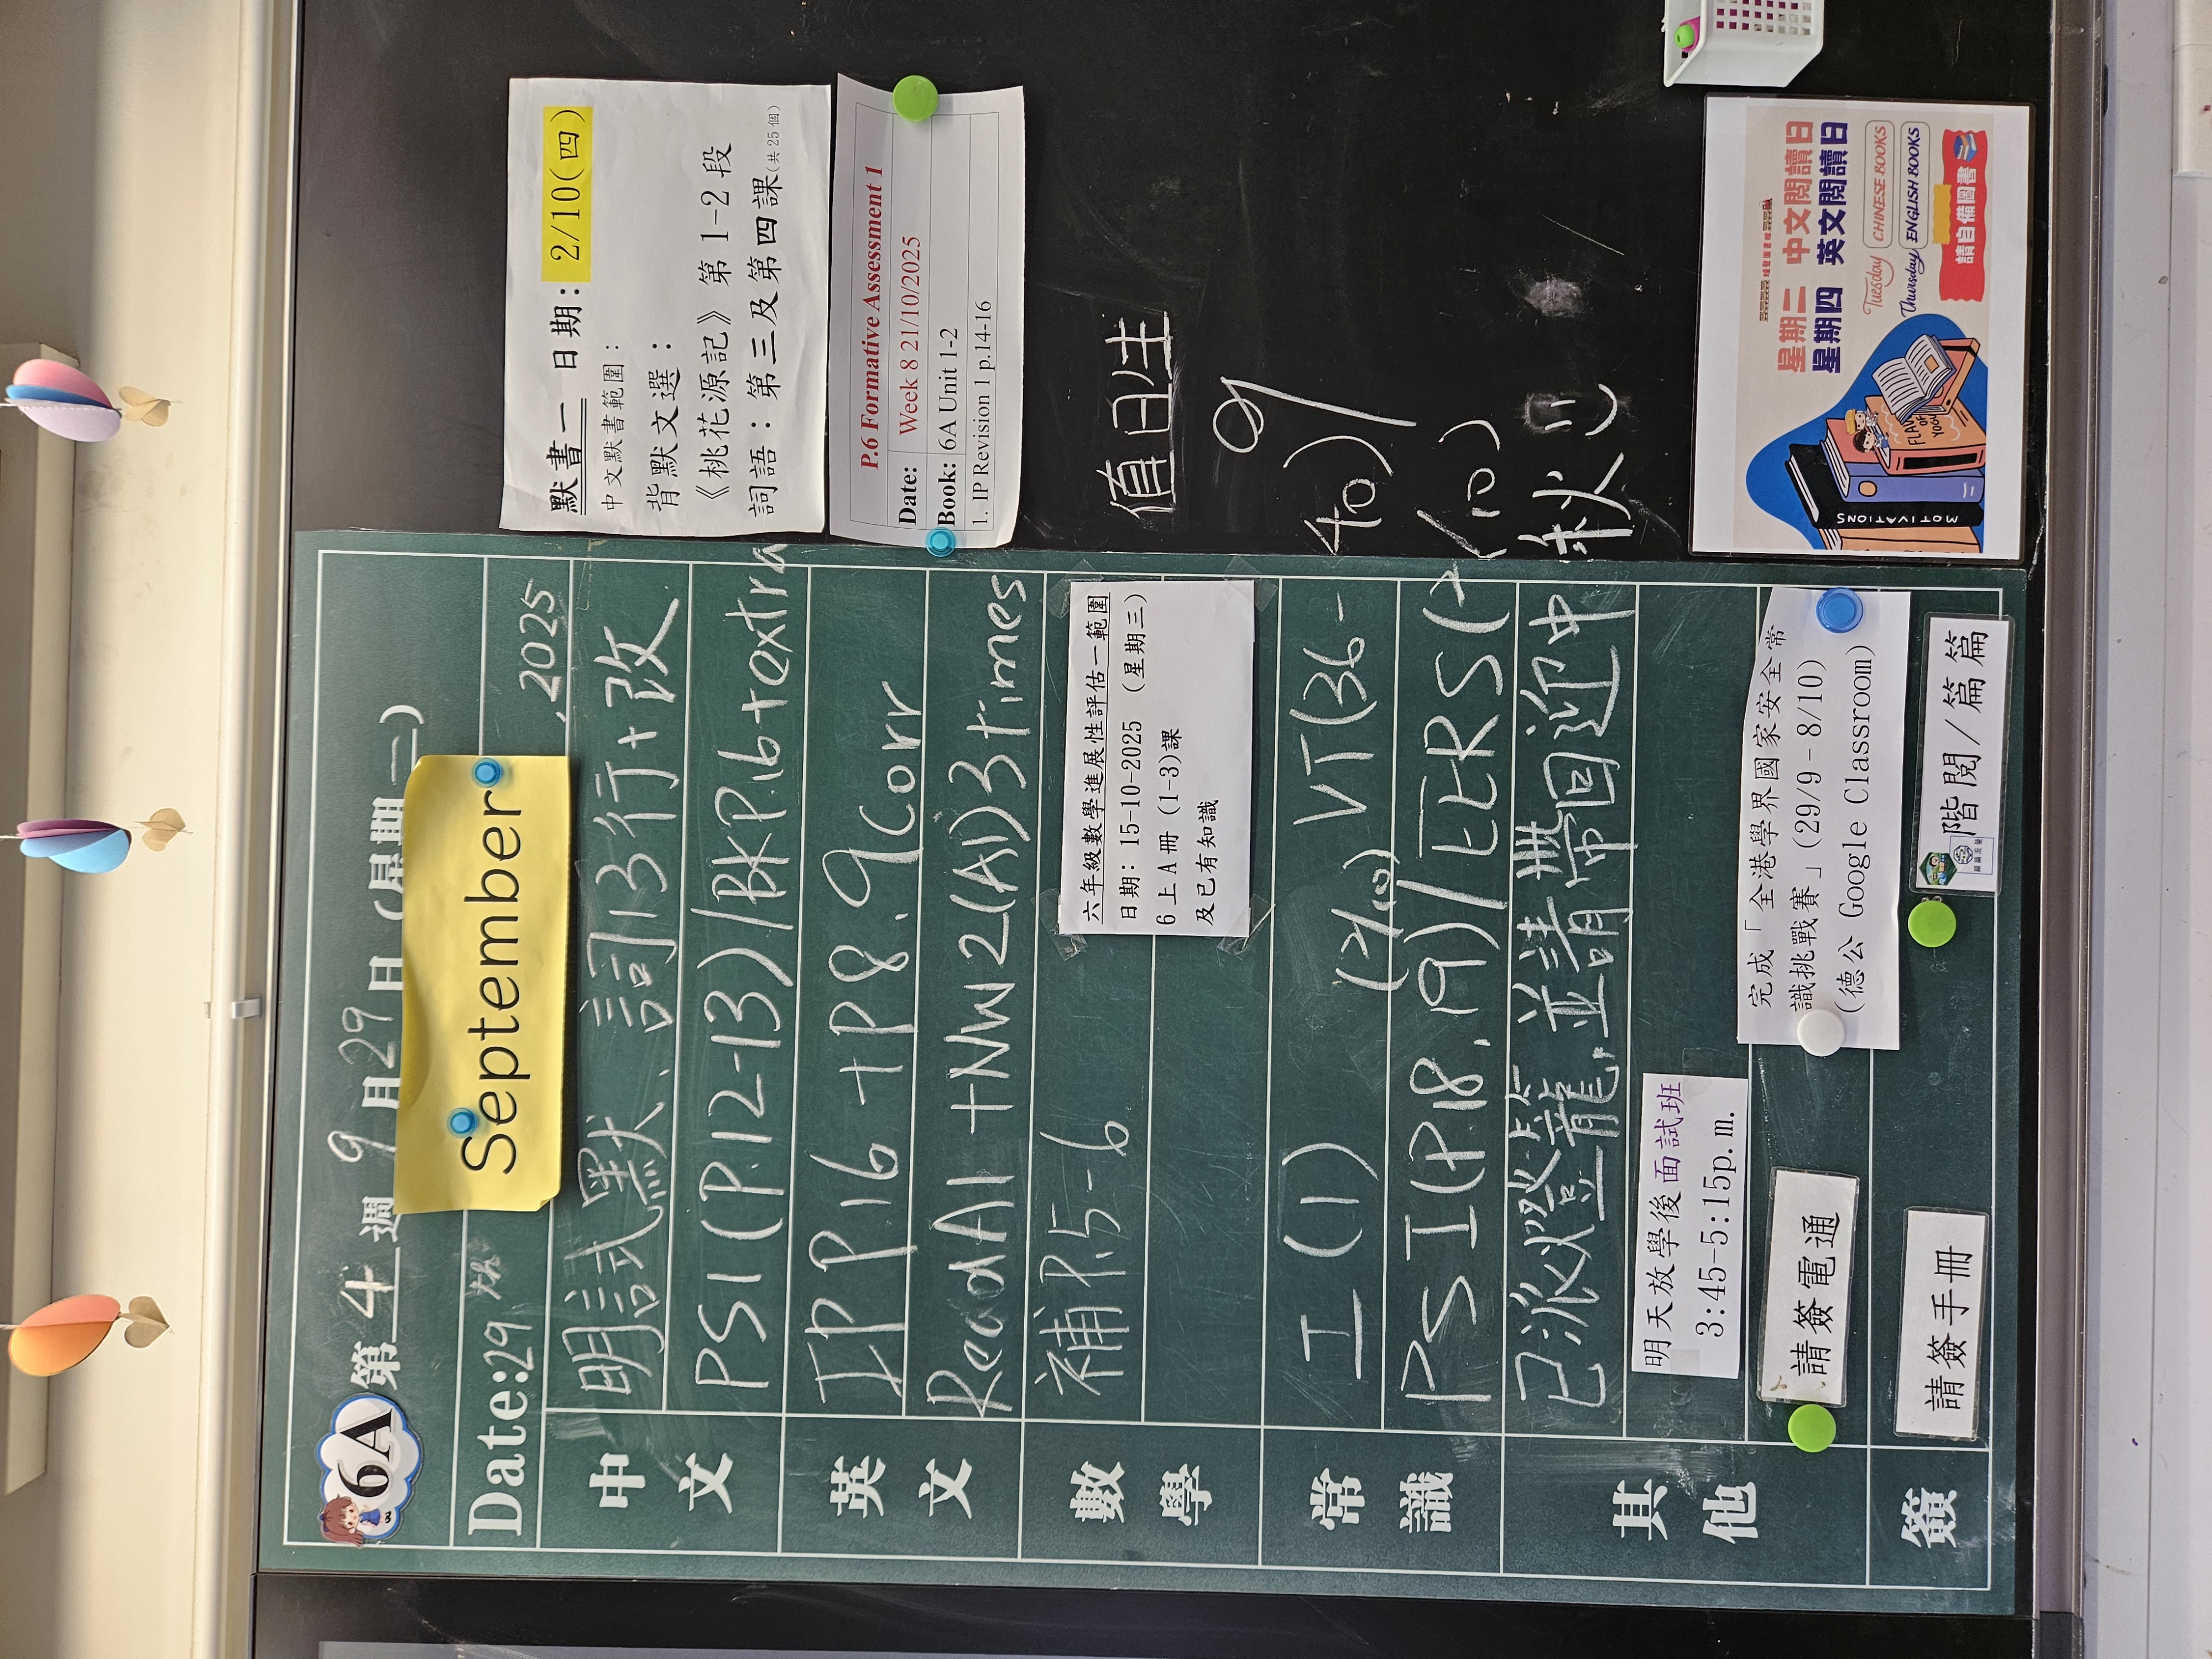 6A 第 4 週 9 月 29 日 (星期一)
Date: 29th September, 2025
中文
明試默、詞13行+改
PS1(P.12-13)/BKP.16+extra
英文
IP P16 + P8.9 Corr
ReadA1+NW2(A1)3times
數學
補P.5-6
六年級數學進展性評估一範圍
日期：15-10-2025 (星期三)
6上A冊 (1-3)課
及已有知識
常識
I(1) (2/10) VT(36-40)
PSI(P.18.19)/EERS(
其他
已派燈籠,並請帶回迎中秋
明天放學後面試班
3:45-5:15p.m.
完成「全港學界國家安全常
識挑戰賽」(29/9-8/10)
(德公 Google Classroom)
請簽電通
簽
請簽手冊
階閱/篇篇
默書一 日期：2/10(四)
中文默書範圍：
背默文選：
《桃花源記》第 1-2 段
詞語：第三及第四課(共25個)
P.6 Formative Assessment 1
Date: Week 8 21/10/2025
Book: 6A Unit 1-2
1. IP Revision 1 p.14-16
值日生
9
星期二 中文閱讀日
星期四 英文閱讀日
Tuesday CHINESE BOOKS
Thursday ENGLISH BOOKS
請自備圖書
MOTIVATIONS